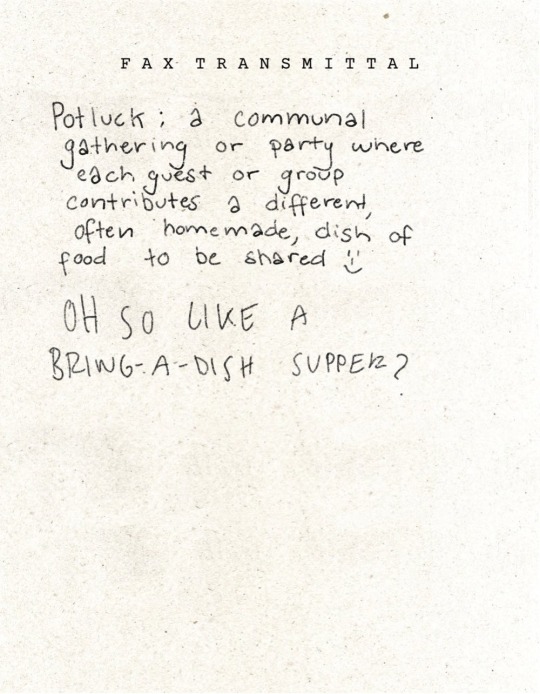 FAX TRANSMITTAL
Potluck: a communal
gathering or party where
each guest or group
contributes a different,
often homemade, dish of
food to be shared
OH SO LIKE A
BRING-A-DISH SUPPER?